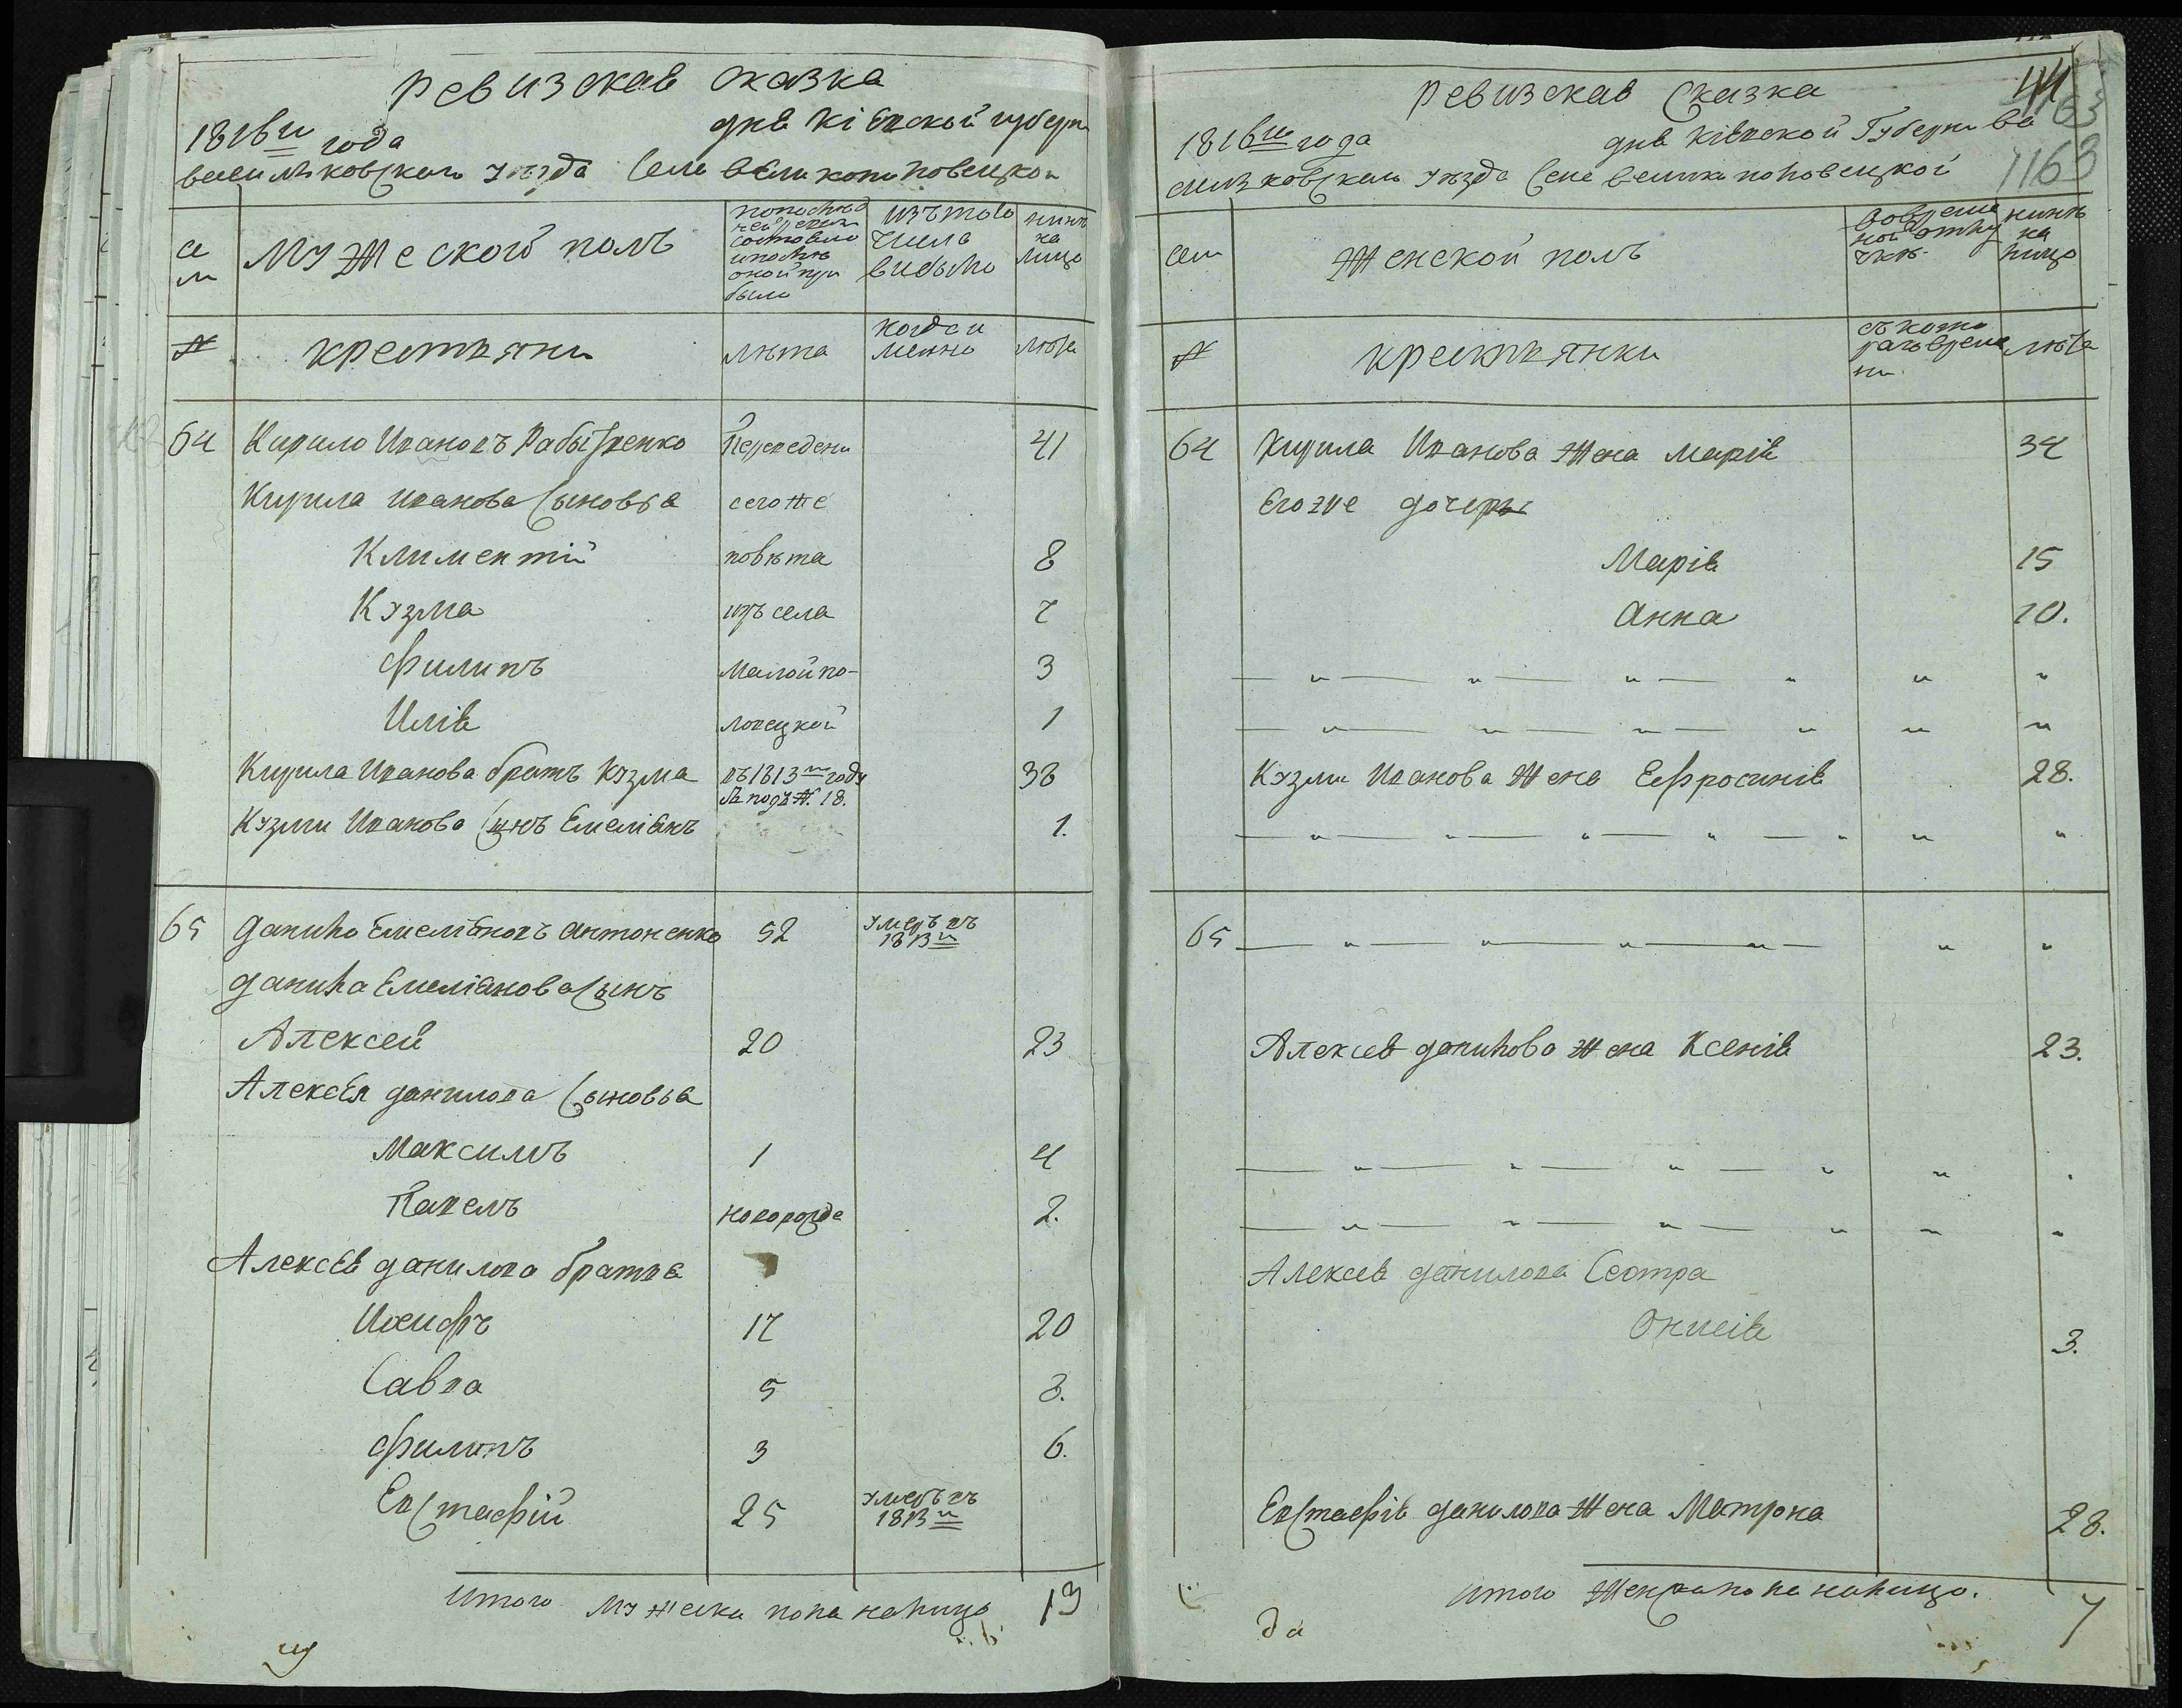 Ревизская сказка
1816го года
дня Кіевской губерни
васильковскаго уезда села великополовецкой
се
м
Мужеской полъ
по послед
ней ревизи
состояло
и после
оной при
было
изъ того
числа
выбыло
ныне
на
лицо
№
крестьяни
лета
когда и
менно
лета
64 Кирило Ивановъ Рабы ренко Переведени 41
Кирила Иванова Сыновья сего же
Климентій повета 8
Кузма изъ села 7
Филипъ Малой по- 3
Илія ловецкой 1
Кирила Иванова братъ Кузма въ 1813м году 38
подъ № 18.
Кузми Иванова Сынъ Емеліянъ 1.
65 Данило Емеліановъ Антоненко 52 умеръ въ
1813м
Данила Емеліанова Сынъ
Алексей 20 23
Алексея Данилова Сыновья
Максимъ 1 4
Павелъ новорожде 2.
Алексея Данилова братья
Иосифъ 17 20
Савва 5 8.
Филипъ 3 6.
Евстафій 25 умеръ въ
1813м
Итого мужеска пола налицо 13
44
1163
1163
Ревизская Сказка
1816го года
дня Кіевской Губерни Ва
силковскаго уезда Села Велико половецкой
сем
Женской полъ
во време
ной отлу
чке
ныне
на
лицо
№
крестьянки
съ кото
раго време
ни
лета
64 Кирила Иванова жена Марія 34
Его же дочери
Марія 15
Анна 10.
Кузми Иванова жена Еефросинія 28.
65
Алексея Данилова жена Ксенія 23.
Алексея Данилова Сестра
Онисія 3.
Евстафія Данилова жена Матрона 28.
Итого Женска пола налицо. 7
да